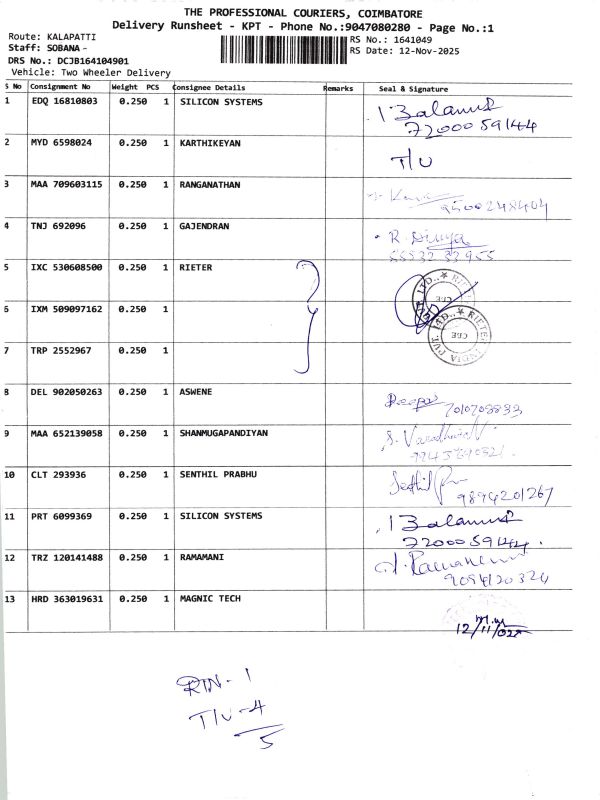 THE PROFESSIONAL COURIERS, COIMBATORE
Delivery Runsheet - KPT - Phone No.:9047080280 - Page No.:1
Route: KALAPATTI
RS No.: 1641049
Staff: SOBANA -
RS Date: 12-Nov-2025
DRS No.: DCJB164104901
Vehicle: Two Wheeler Delivery
S No Consignment No Weight PCS Consignee Details Remarks Seal & Signature
1 EDQ 16810803 0.250 1 SILICON SYSTEMS
7200059144
2 MYD 6598024 0.250 1 KARTHIKEYAN T/U
3 MAA 709603115 0.250 1 RANGANATHAN
4 TNJ 692096 0.250 1 GAJENDRAN R. Divya
5 IXC 530608500 0.250 1 RIETER
6 IXM 509097162 0.250 1
7 TRP 2552967 0.250 1
RIETER INDIA PVT. LTD.. ★
CBE
8 DEL 902050263 0.250 1 ASWENE Deepa
9 MAA 652139058 0.250 1 SHANMUGAPANDIYAN
10 CLT 293936 0.250 1 SENTHIL PRABHU Senthil
9894201267
11 PRT 6099369 0.250 1 SILICON SYSTEMS
7200059144.
12 TRZ 120141488 0.250 1 RAMAMANI
9094120324
13 HRD 363019631 0.250 1 MAGNIC TECH
12/11/025
RTN - 1
T/U - 4
5